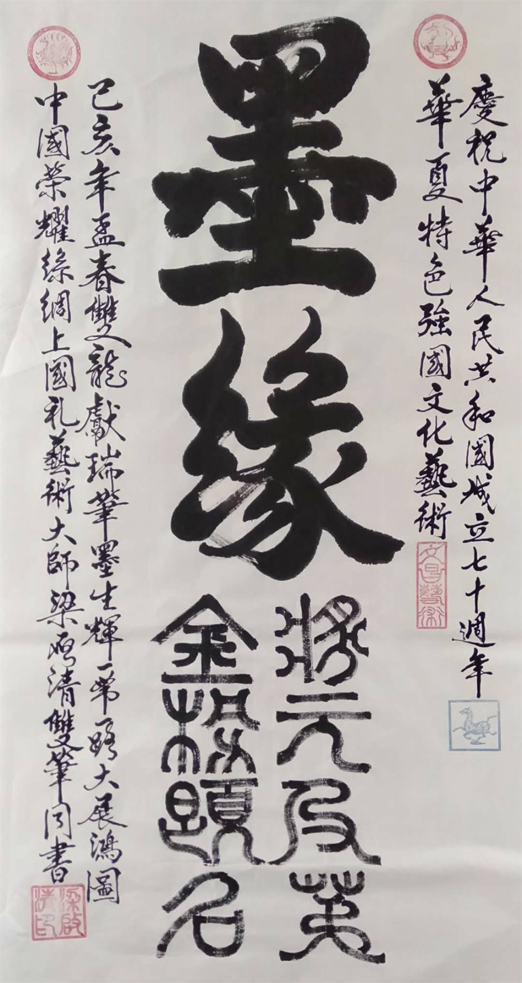 慶祝中華人民共和國成立七十週年
華夏特色強國文化藝術
文昌藝術
墨緣
狀元及第
金榜題名
己亥年孟春雙龍獻瑞筆墨生輝一帶一路大展鴻圖
中國榮耀絲綢上國礼藝術大師梁啟清雙筆同書
梁啟清印